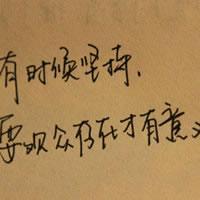 有时候坚持、
要观众存在才有意义